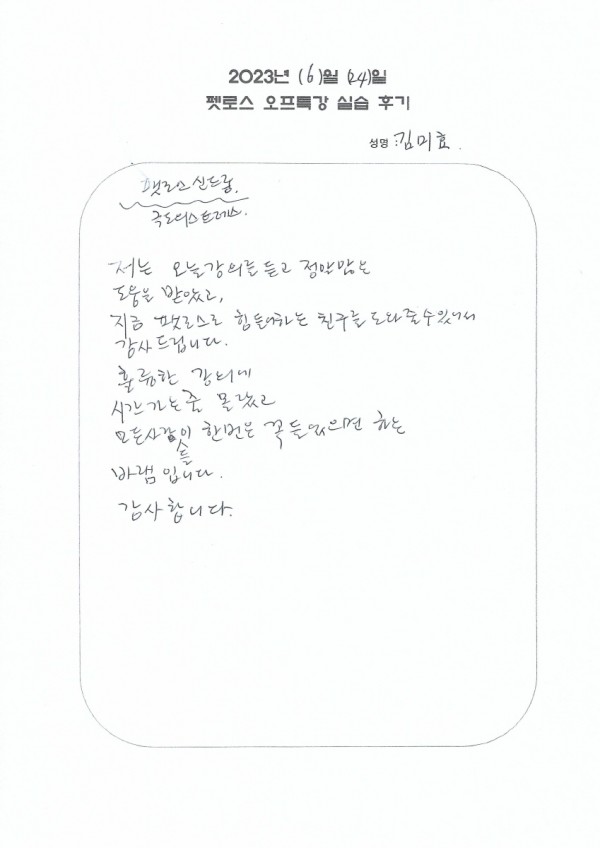 2023년 (6)월 (24)일
펫로스 오프특강 실습 후기
성명 : 김미효.
펫로스신드롬.
극도의스트레스.
저는 오늘강의를듣고 정말많은
도움을 받았고,
지금 펫로스로 힘들어하는 친구를도와줄수있어서
감사드립니다.
훌륭한 강의에
시간가는줄 몰랐고
모든사람들이 한번은 꼭들었으면 하는
바램입니다.
감사합니다.